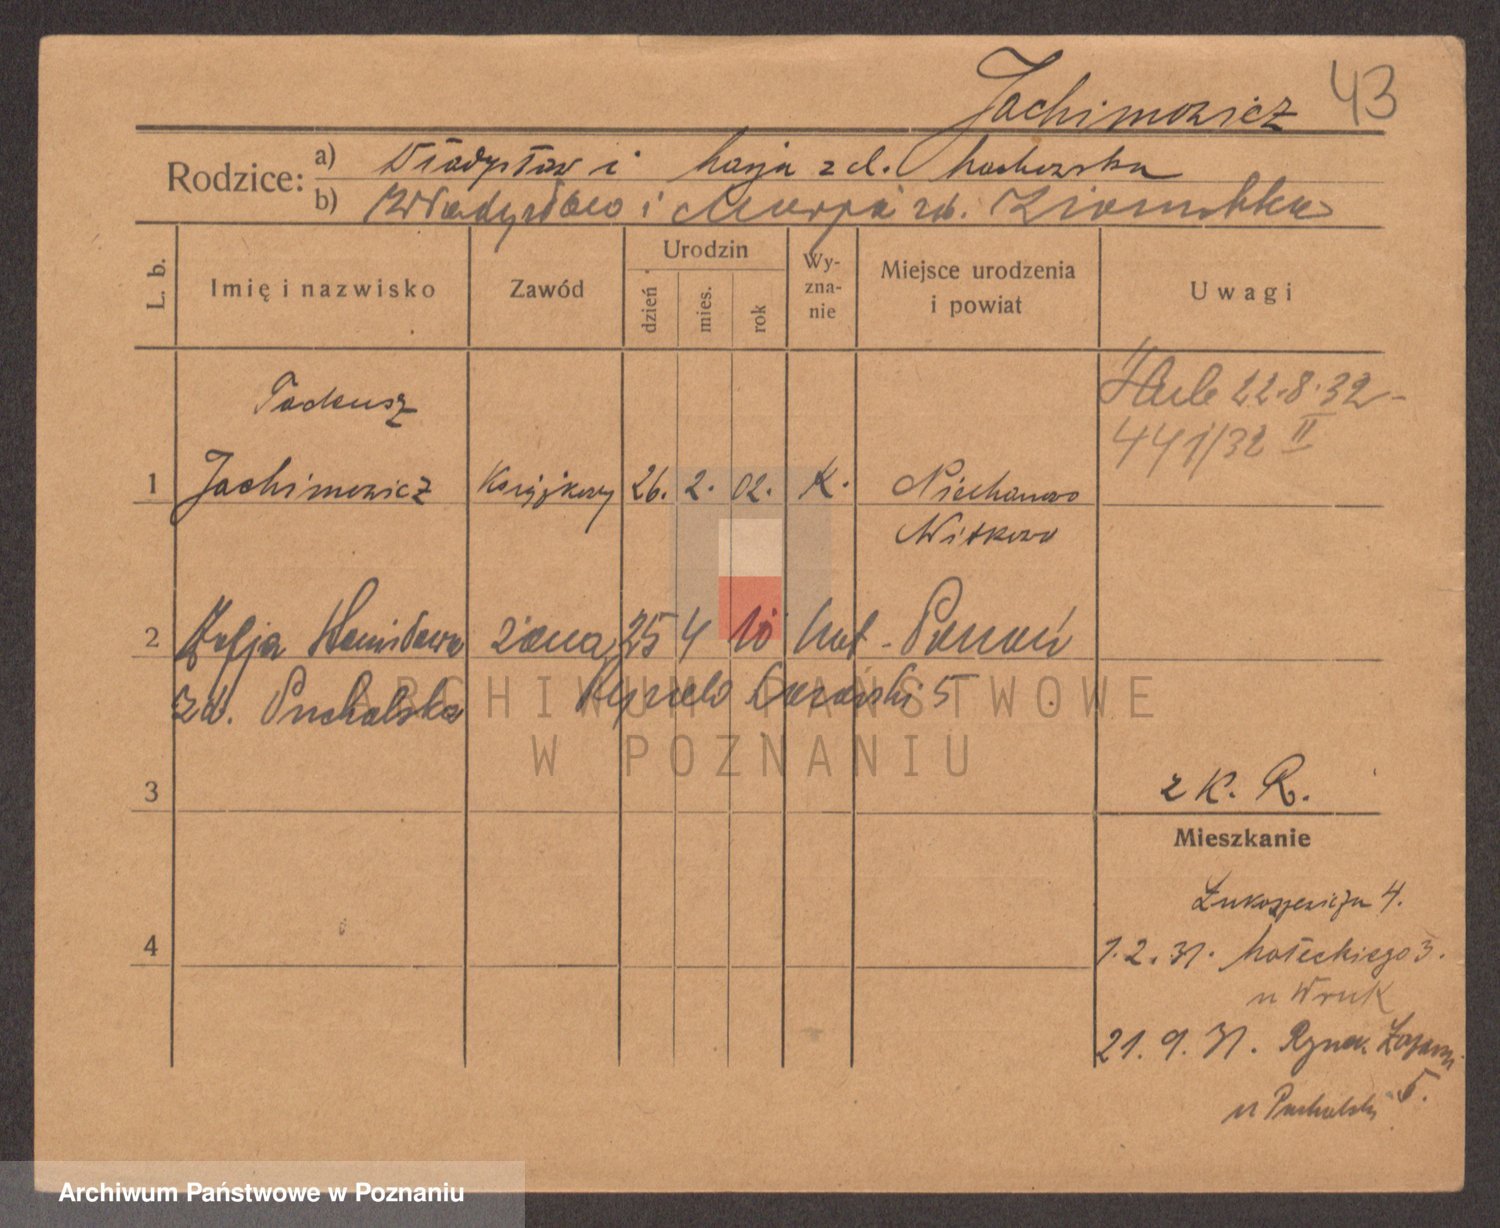 Jachimowicz 43
Rodzice: a) Władysław i Marja z d. Machowska
b) Władysław i Marja zd. Ziomkka
L. b.
Imię i nazwisko
Zawód
Urodzin
dzień
mies.
rok
Wy-
zna-
nie
Miejsce urodzenia
i powiat
Uwagi
22.8.32 -
441/32 II
Tadeusz
1 Jachimowicz Książkowy 26. 2. 02. K. Niechanowo
Witkowo
2 Zofja Stanisława żona 25 4 10 kat. Poznań
zd. Puchalska Rynek Łazarski 5
ARCHIWUM PAŃSTWOWE
W POZNANIU
3 z K. R.
Mieszkanie
Łukaszewicza 4.
4 1.2.31. Małeckiego 3.
u Wruk
21.9.31. Rynek Łazarsk.
u Puchalski 5.
Archiwum Państwowe w Poznaniu